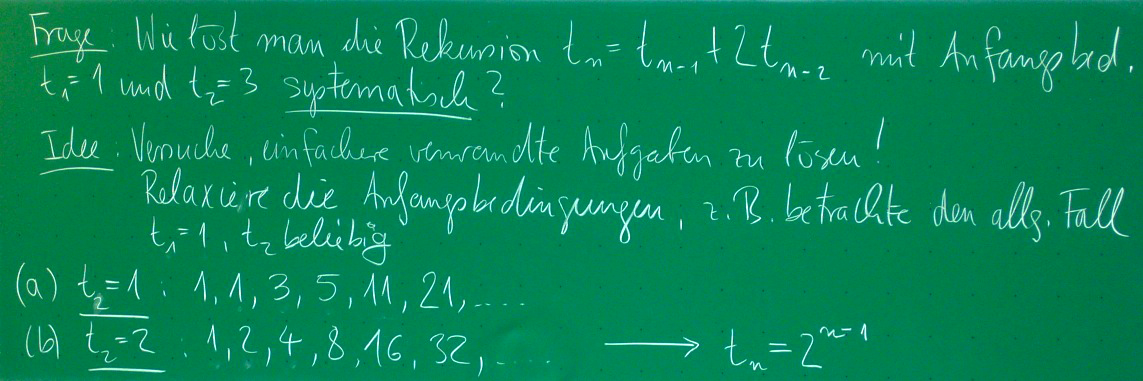 Frage: Wie löst man die Rekursion tₙ = tₙ₋₁ + 2tₙ₋₂ mit Anfangsbed.
t₁=1 und t₂=3 systematisch?
Idee: Versuche, einfachere verwandte Aufgaben zu lösen!
Relaxiere die Anfangsbedingungen, z.B. betrachte den allg. Fall
t₁=1, t₂ beliebig
(a) t₂=1 : 1, 1, 3, 5, 11, 21, .....
(b) t₂=2 : 1, 2, 4, 8, 16, 32, ...... ⟶ tₙ = 2ⁿ⁻¹